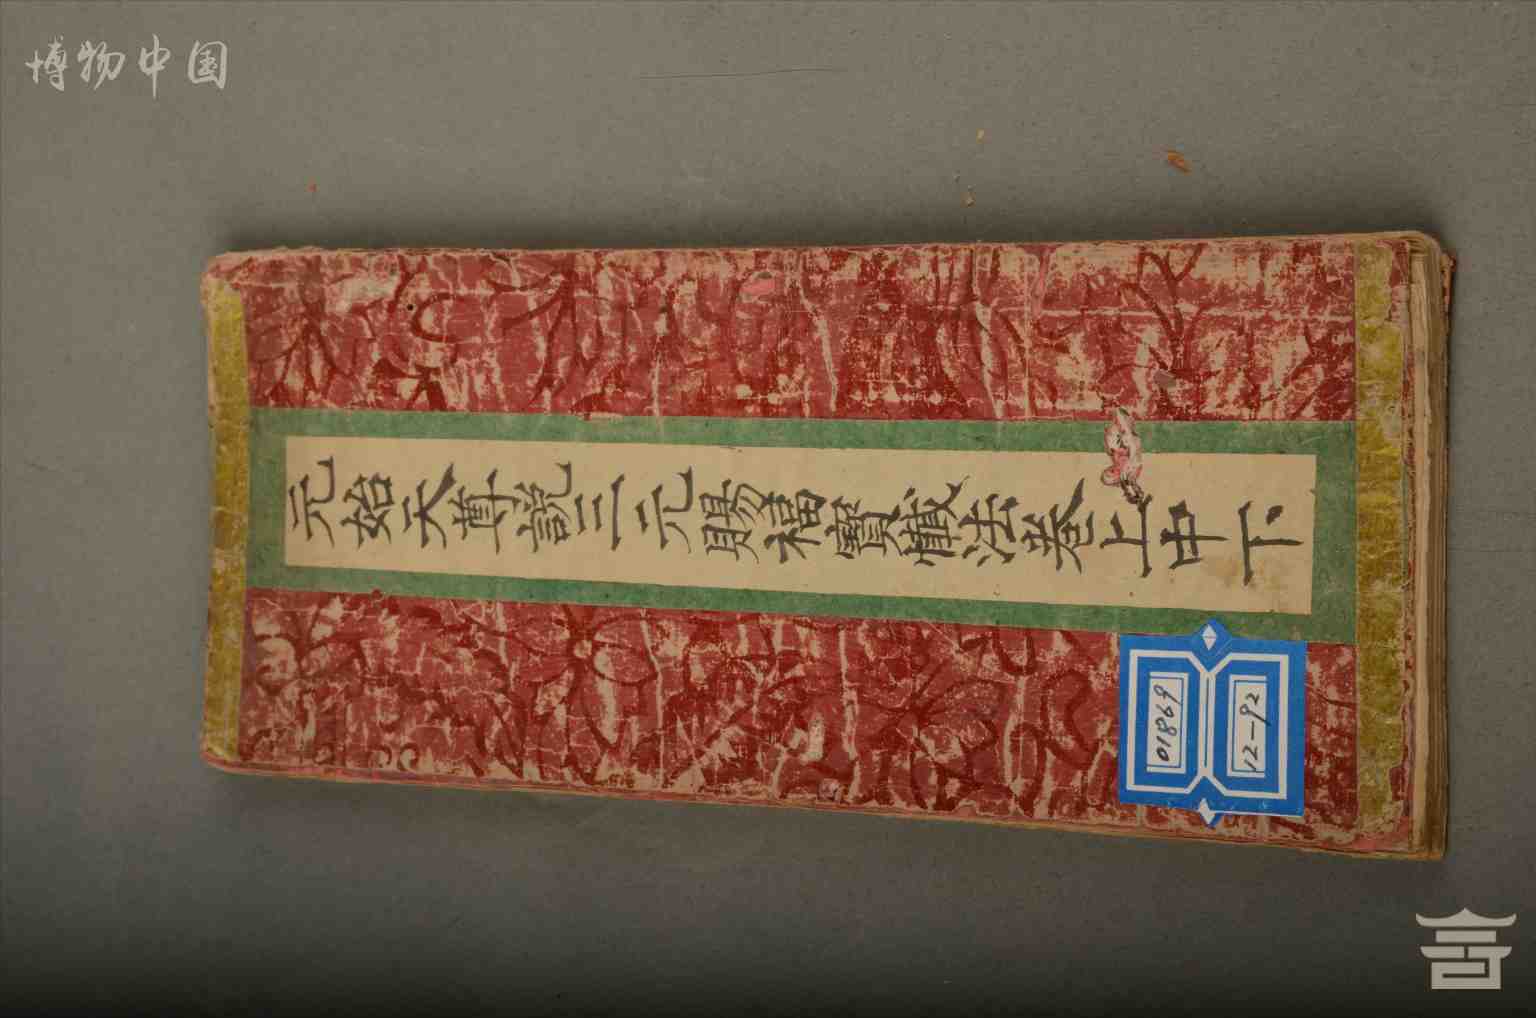 博物中国
元始天尊說三元賜福寶懺法卷上中下
01869
12-92